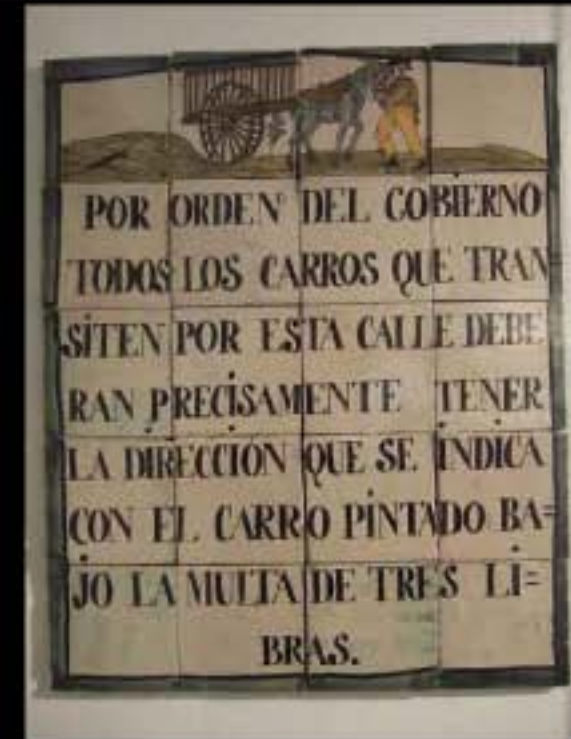 POR ORDEN DEL GOBIERNO
TODOS LOS CARROS QUE TRAN=
SITEN POR ESTA CALLE DEBE
RAN PRECISAMENTE TENER
LA DIRECCION QUE SE INDICA
CON EL CARRO PINTADO BA=
JO LA MULTA DE TRES LI=
BRAS.